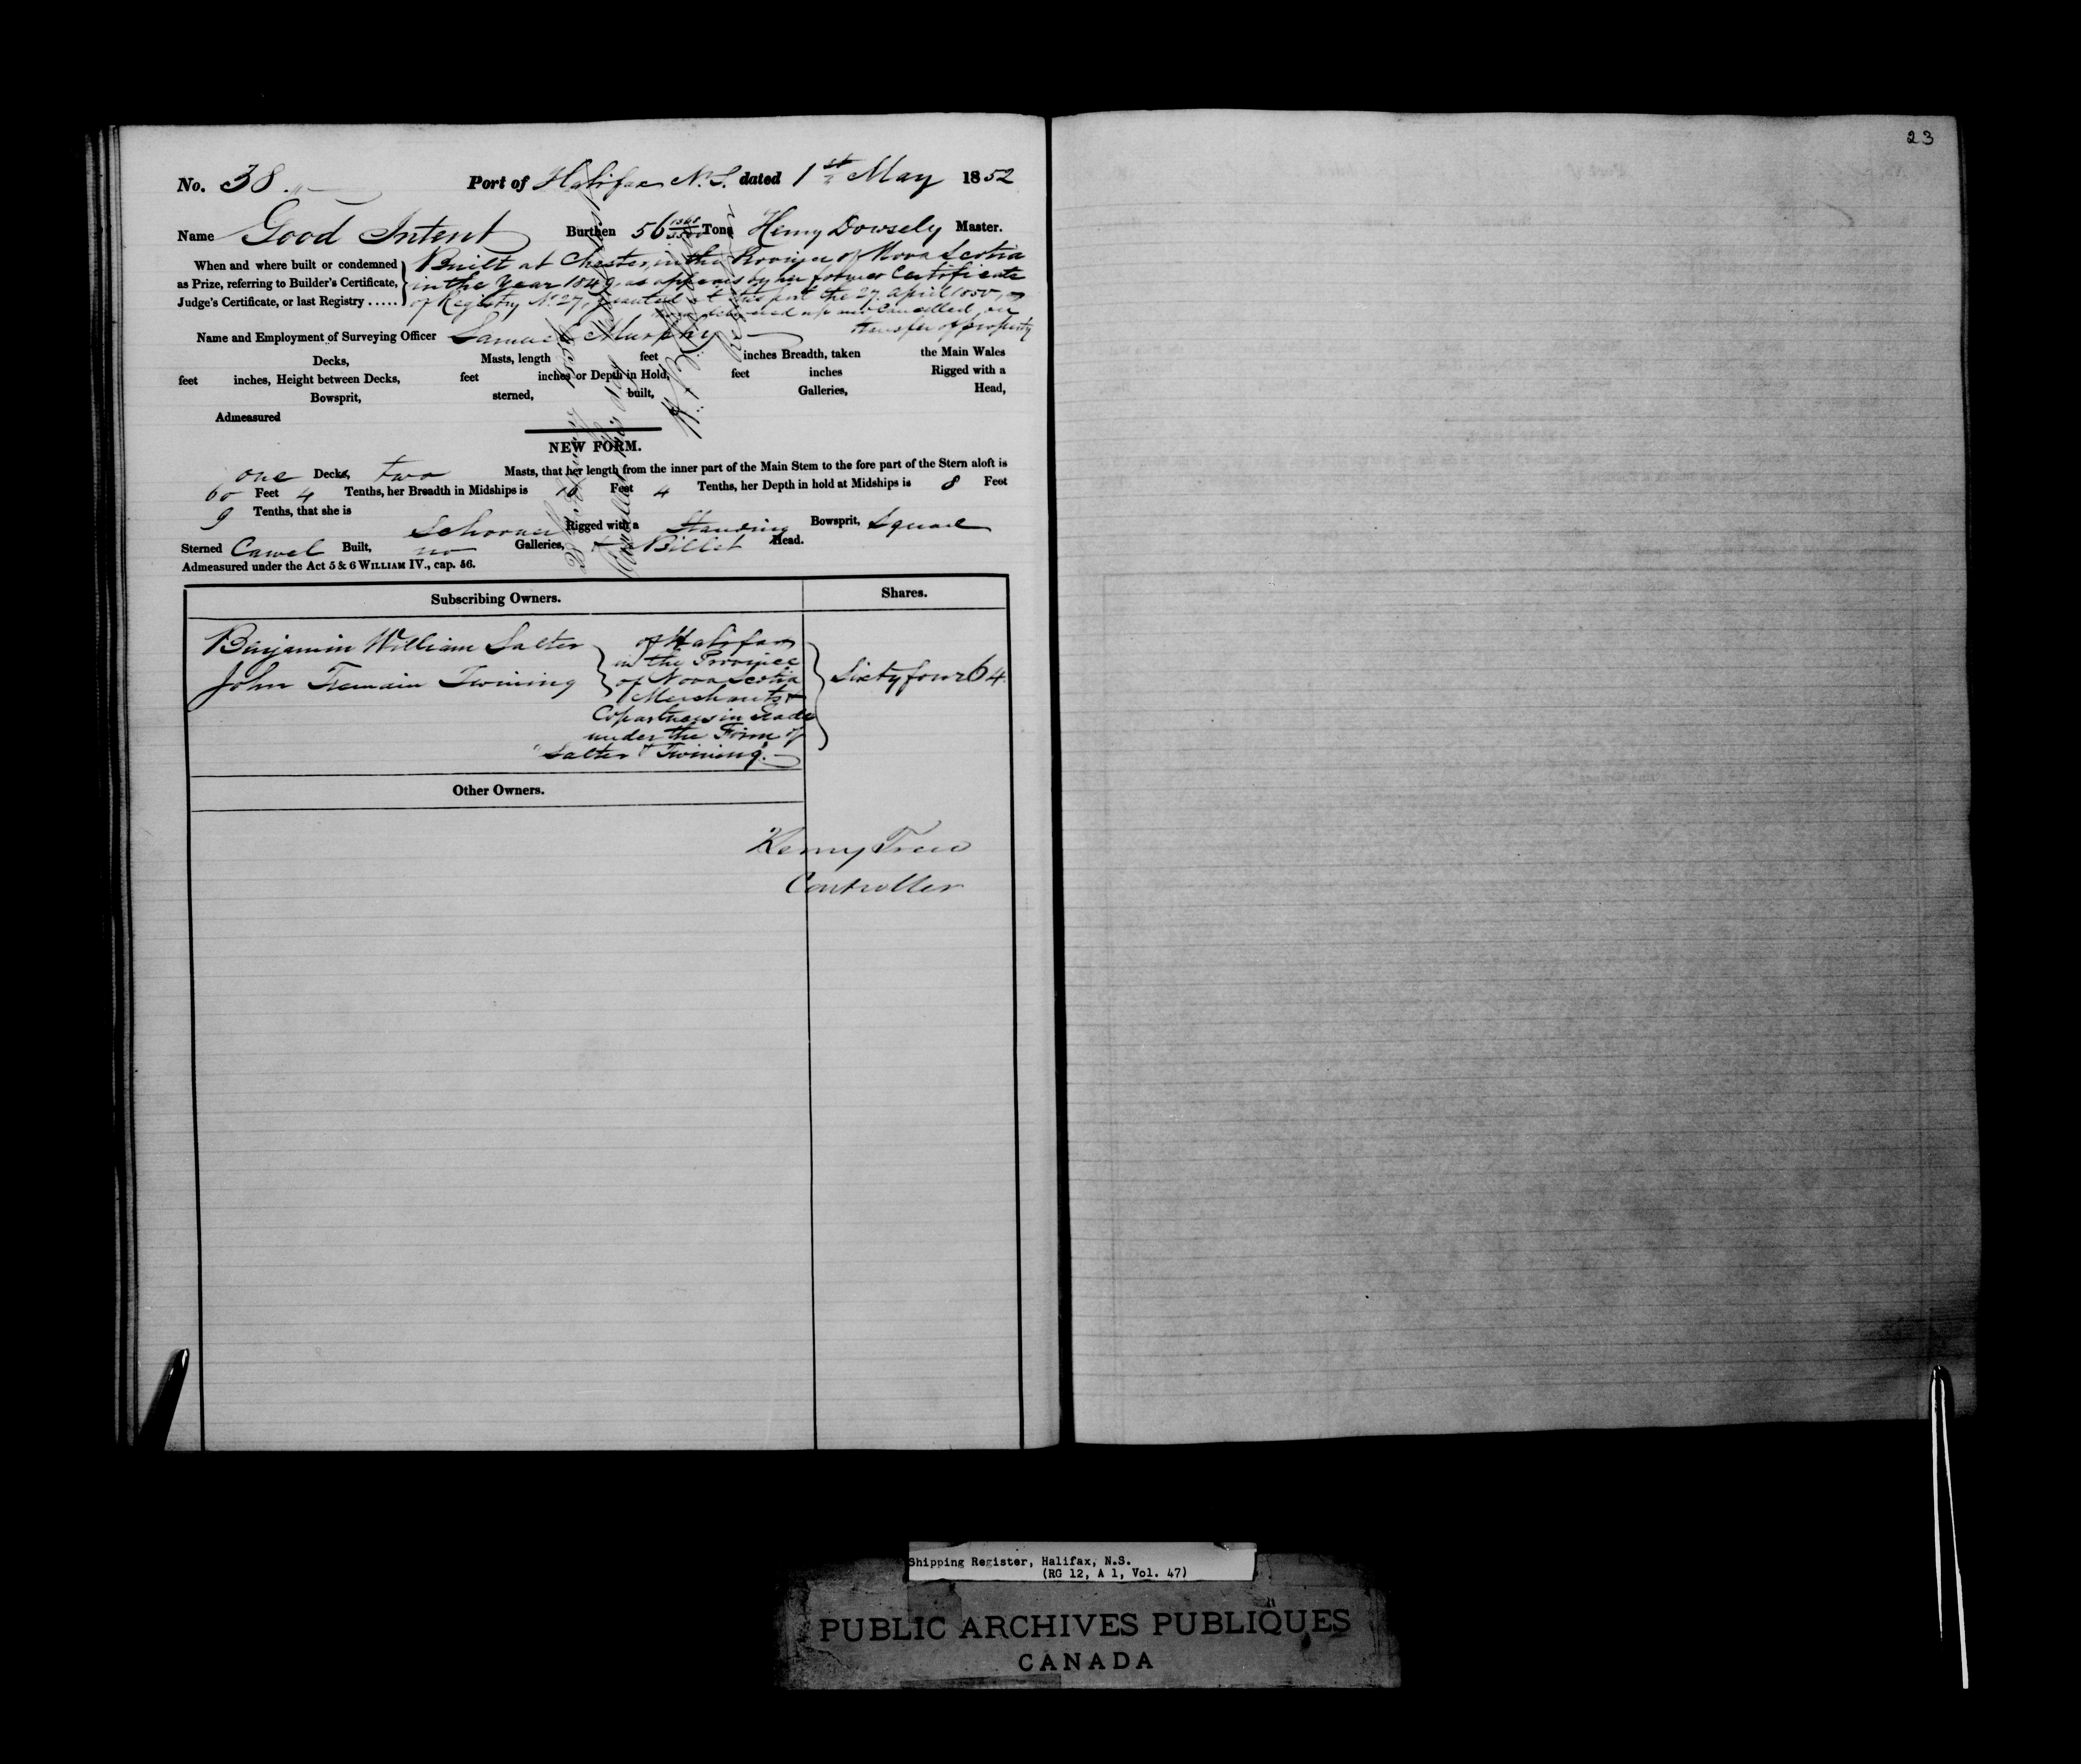 23
No. 38 Port of Halifax N.S. dated 1st May 1852
Name Good Intent Burthen 56 Tons Henry Dowsely Master.
When and where built or condemned Built at Chester, in the Province of Nova Scotia
as Prize, referring to Builder's Certificate, in the Year 1849, as appears by her former Certificate
Judge's Certificate, or last Registry ..... of Registry No. 27, granted at this port the 27 April 1850,
now delivered up and Cancelled, on
transfer of property
Name and Employment of Surveying Officer Samuel Murphy
Decks, Masts, length feet inches Breadth, taken the Main Wales
feet inches, Height between Decks, feet inches or Depth in Hold, feet inches Rigged with a
Bowsprit, sterned, built, Galleries, Head,
Admeasured
NEW FORM.
one Decks, two Masts, that her length from the inner part of the Main Stem to the fore part of the Stern aloft is
60 Feet 4 Tenths, her Breadth in Midships is Feet 4 Tenths, her Depth in hold at Midships is 8 Feet
9 Tenths, that she is
Schooner Rigged with a Standing Bowsprit, Square
Sterned Carvel Built, no Galleries, Billet Head.
Admeasured under the Act 5 & 6 WILLIAM IV., cap. 56.
Subscribing Owners. Shares.
Benjamin William Salter of Halifax
in the Province
John Tremain Twining of Nova Scotia Sixty four 64
Merchants &
Copartners in Trade
under the Firm of
"Salter & Twining".
Other Owners.
Henry Trew
Controller
Shipping Register, Halifax, N.S.
(RG 12, A 1, Vol. 47)
PUBLIC ARCHIVES PUBLIQUES
CANADA